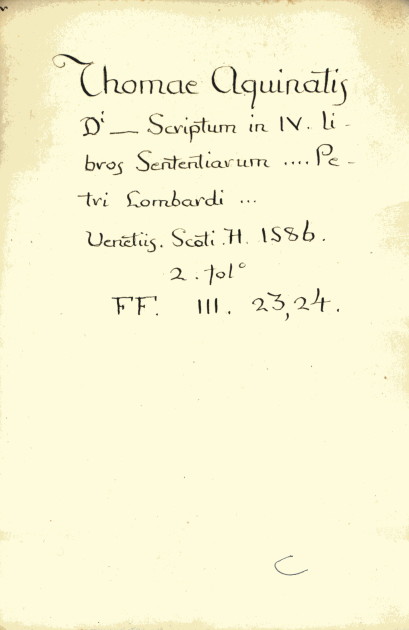 Thomae Aquinatis
Di — Scriptum in IV. li-
bros Sententiarum .... Pe-
tri Lombardi ...
Venetiis. Scoti. H. 1586.
2. fol°
FF. III. 23,24.